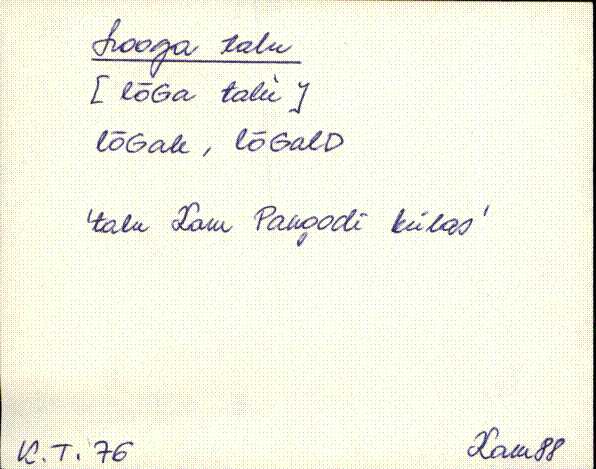 Looga talu
[lōGa talù]
lōGale, lōGalD
'talu Kam Pangodi külas'
K.T. 76
Kam 88